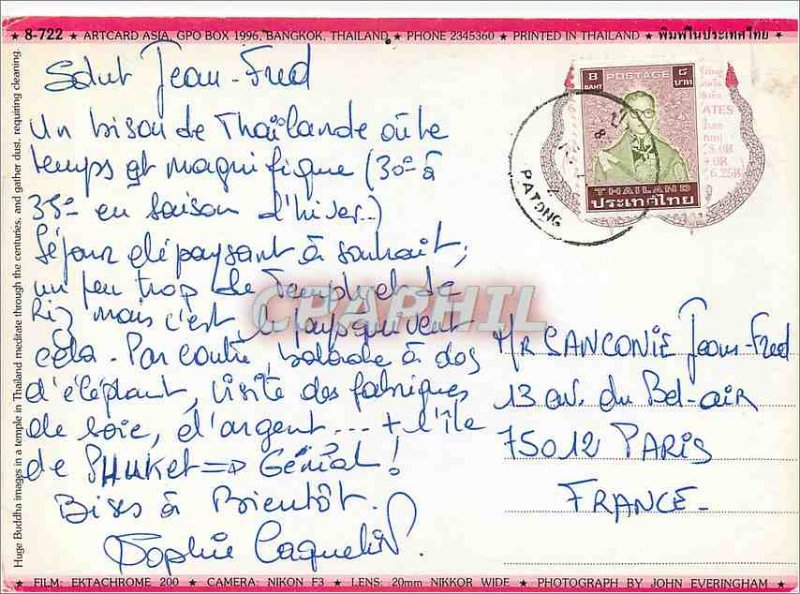 ★ 8-722 ★ ARTCARD ASIA, GPO BOX 1996, BANGKOK, THAILAND ★ PHONE 2345360 ★ PRINTED IN THAILAND ★ พิมพ์ในประเทศไทย ★
Huge Buddha images in a temple in Thailand meditate through the centuries, and gather dust, requiring cleaning.
Salut Jean-Fred
Un bisou de Thaïlande où le
temps est magnifique (30° à
35° en saison d'hiver..)
Séjour dépaysant à souhait,
un peu trop de Temple et de
Riz mais c'est le pays qui veut
cela. Par contre, balade à dos
d'éléphant, visite des fabriques
de soie, d'argent... + l'île
de PHUKET => Génial!
Bises à Bientôt.
Sophie
8 POSTAGE ๘
BAHT บาท
THAILAND
ประเทศไทย
PATONG
ATES
6.25B
CPAPHIL
MR SANCONIE Jean-Fred
13 av. du Bel-air
75012 PARIS
FRANCE-
★ FILM: EKTACHROME 200 ★ CAMERA: NIKON F3 ★ LENS: 20mm NIKKOR WIDE ★ PHOTOGRAPH BY JOHN EVERINGHAM ★